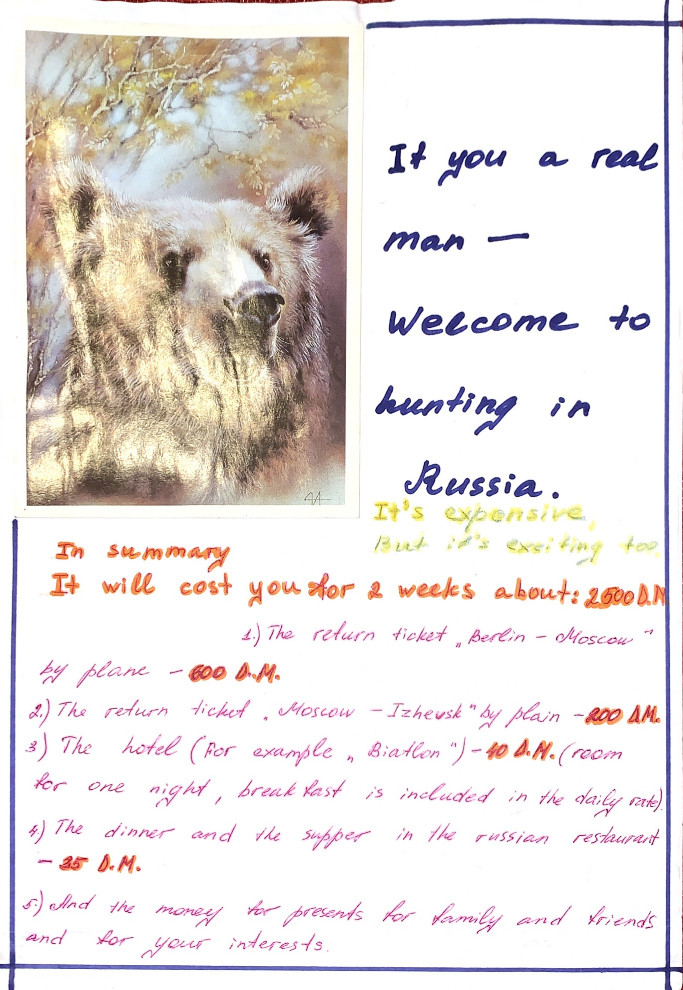 If you a real
man —
Welcome to
hunting in
Russia.
It's expensive,
But it's exciting too.
In summary
It will cost you for 2 weeks about: 2500 D.M
1.) The return ticket „Berlin – Moscow"
by plane – 600 D.M.
2.) The return ticket „Moscow – Izhevsk" by plain – 200 DM.
3) The hotel (For example „Biatlon") – 40 D.M. (room
for one night, breakfast is included in the daily rate).
4) The dinner and the supper in the russian restaurant
– 35 D.M.
5.) And the money for presents for family and friends
and for your interests.